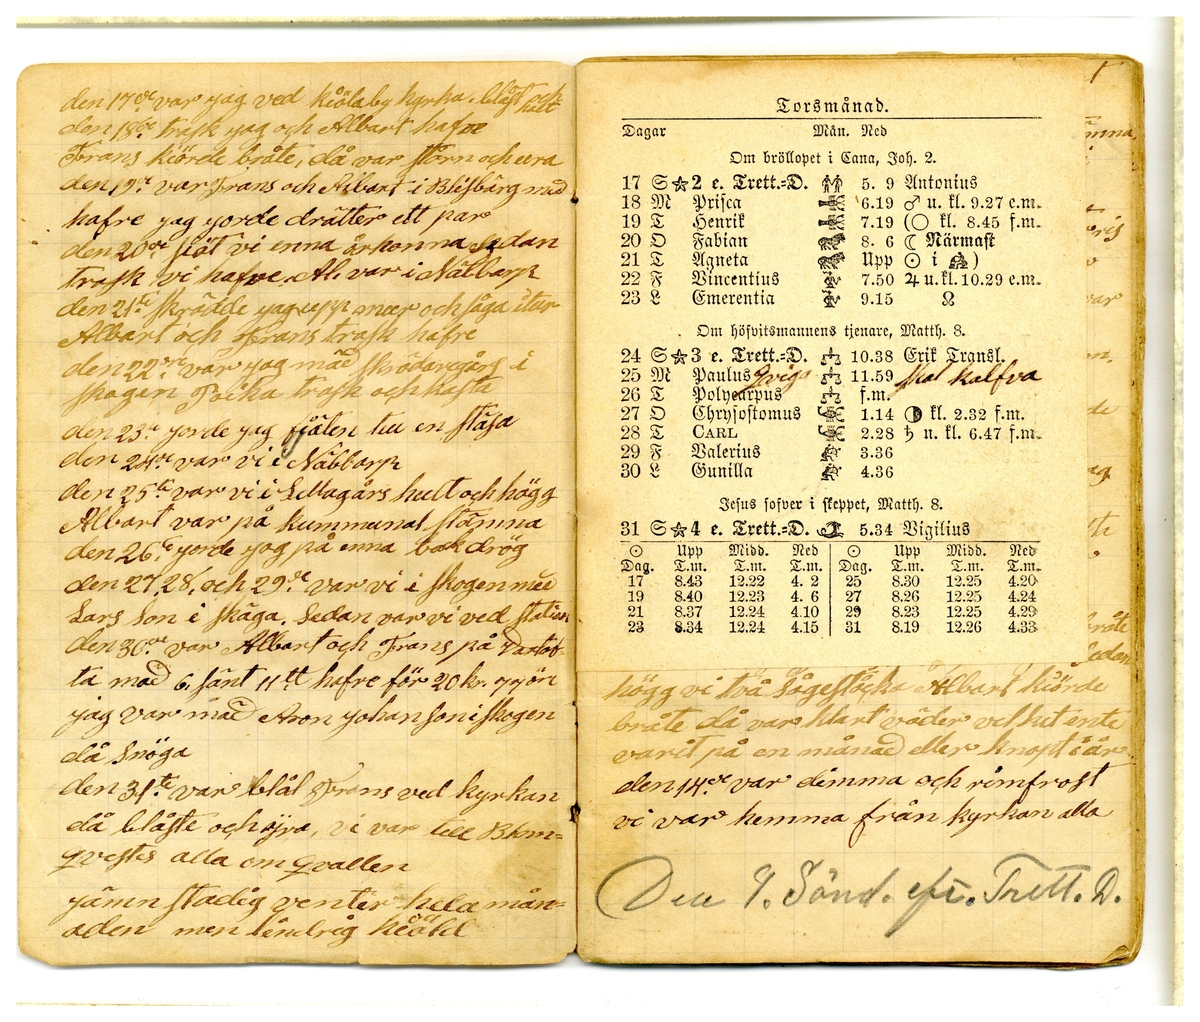 den 17de var jag ved kiölaby kyrka. blåst och
kult
den 18de trask jag och Albart hafre
Frans kiörde bråte, då var storn och
den 19de var Frans och Albart i Blisbärg mäd
hafre jag jorde drätter ett par
den 20de slöt vi enna sedan
trask vi hafre. Al. var i Näbbarp
den 21te skrädde jag upp mær och såga
Albart och Frans trask hafre
den 22dre var jag mäd i
skogen trask och
den 23de jorde jag fjälen till en släja
den 24de var vi i Näbbarp
den 25te var vi i hult och högg
Albart var på kummunal stämna
den 26te jorde jag på enna bakdrög
den 27, 28, och 29de var vi i skogen mäd
Lars Son i skäga. Sedan var vi ved station
den 30de var Albart och Frans på Vartof-
ta mäd 6. sänt 11 tt hafre för 20 kr. 77 öre
jag var mäd Aron Johanson i skogen
då snöga
den 31te var blål Frans ved kyrkan
då blåste och yra, vi var till Blum-
qvestes alla om qvällen
jämn stadig venter hela mån-
aden men lindrig kiöld
Torsmånad.
Dagar Mån. Ned
Om bröllopet i Cana, Joh. 2.
17 S ★ 2 e. Trett.=D. 5. 9 Antonius
18 M Prisca 6.19 ♂ u. kl. 9.27 e.m.
19 T Henrik 7.19 (○ kl. 8.45 f.m.
20 O Fabian 8. 6 ☾ Närmast
21 T Agneta Upp ☉ i ♒)
22 F Vincentius 7.50 ♃ u. kl. 10.29 e.m.
23 L Emerentia 9.15 ☊
Om höfvitsmannens tjenare, Matth. 8.
24 S ★ 3 e. Trett.=D. 10.38 Erik Transl.
25 M Paulus qviga 11.59 skal kalfva
26 T Polycarpus f.m.
27 O Chrysostomus 1.14 ◑ kl. 2.32 f.m.
28 T CARL 2.28 ♄ u. kl. 6.47 f.m.
29 F Valerius 3.36
30 L Gunilla 4.36
Jesus sofver i skeppet, Matth. 8.
31 S ★ 4 e. Trett.=D. 5.34 Vigilius
☉ Upp Midd. Ned ☉ Upp Midd. Ned
Dag. T.m. T.m. T.m. Dag. T.m. T.m. T.m.
17 8.43 12.22 4. 2 25 8.30 12.25 4.20
19 8.40 12.23 4. 6 27 8.26 12.25 4.24
21 8.37 12.24 4.10 29 8.23 12.25 4.29
23 8.34 12.24 4.15 31 8.19 12.26 4.33
högg vi två sågestöcka Albart kiörde
bråte då var klart väder vilket ente
varit på en månad eller knapt i år
den 14de var dimma och rimfrost
vi var hemma från kyrkan alla
Den 9. Sönd. eft. Trett. D.